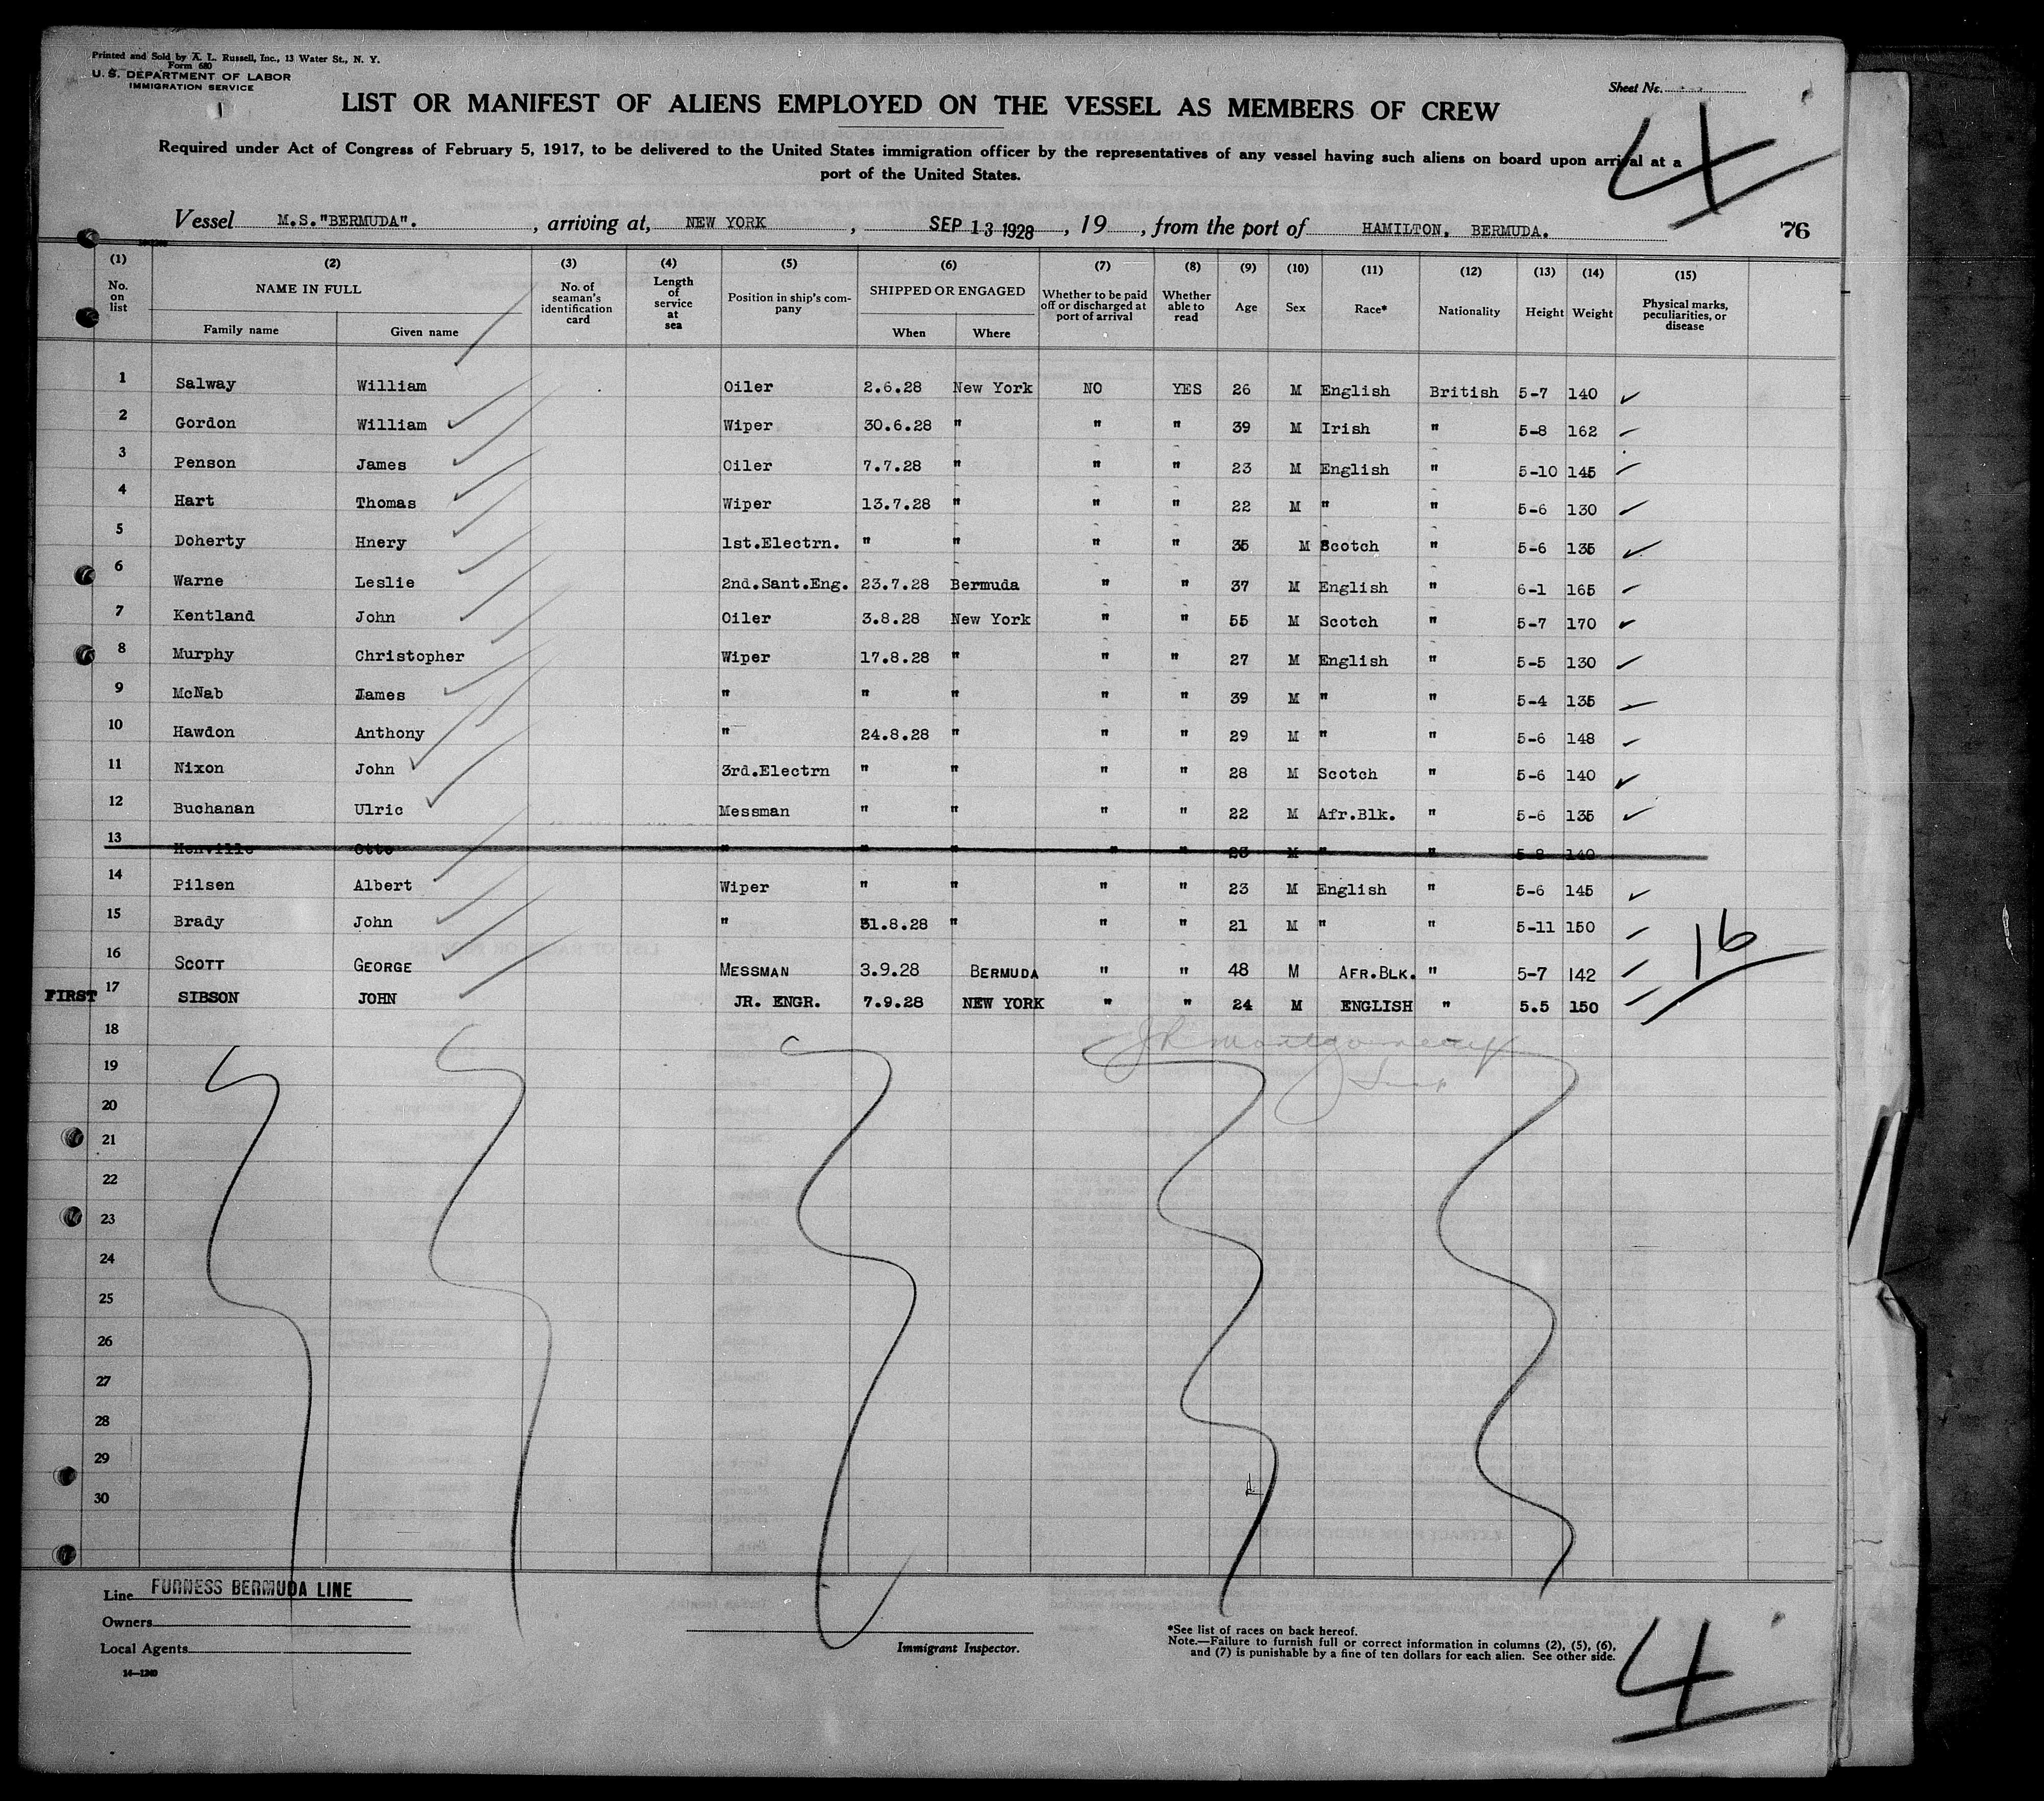 Printed and Sold by A. L. Russell, Inc., 13 Water St., N. Y.
Form 680
U. S. DEPARTMENT OF LABOR
IMMIGRATION SERVICE
Sheet No.
LIST OR MANIFEST OF ALIENS EMPLOYED ON THE VESSEL AS MEMBERS OF CREW
4
Required under Act of Congress of February 5, 1917, to be delivered to the United States immigration officer by the representatives of any vessel having such aliens on board upon arrival at a
port of the United States.
Vessel M.S."BERMUDA". , arriving at, NEW YORK , SEP 13 1928 , 19 , from the port of HAMILTON, BERMUDA. 76
14-1240
(1) (2) (3) (4) (5) (6) (7) (8) (9) (10) (11) (12) (13) (14) (15)
No. on list NAME IN FULL Family name Given name No. of seaman's identification card Length of service at sea Position in ship's company SHIPPED OR ENGAGED When Where Whether to be paid off or discharged at port of arrival Whether able to read Age Sex Race* Nationality Height Weight Physical marks, peculiarities, or disease
1 Salway William Oiler 2.6.28 New York NO YES 26 M English British 5-7 140 ✓
2 Gordon William Wiper 30.6.28 " " " 39 M Irish " 5-8 162 ✓
3 Penson James Oiler 7.7.28 " " " 23 M English " 5-10 145 ✓
4 Hart Thomas Wiper 13.7.28 " " " 22 M " " 5-6 130 ✓
5 Doherty Hnery 1st.Electrn. " " " " 35 M Scotch " 5-6 135 ✓
6 Warne Leslie 2nd.Sant.Eng. 23.7.28 Bermuda " " 37 M English " 6-1 165 ✓
7 Kentland John Oiler 3.8.28 New York " " 55 M Scotch " 5-7 170 ✓
8 Murphy Christopher Wiper 17.8.28 " " " 27 M English " 5-5 130 ✓
9 McNab James " " " " " 39 M " " 5-4 135 ✓
10 Hawdon Anthony " 24.8.28 " " " 29 M " " 5-6 148 ✓
11 Nixon John 3rd.Electrn " " " " 28 M Scotch " 5-6 140 ✓
12 Buchanan Ulric Messman " " " " 22 M Afr.Blk. " 5-6 135 ✓
13 Henville Otto " " " " " 23 M " " 5-8 140
14 Pilsen Albert Wiper " " " " 23 M English " 5-6 145 ✓
15 Brady John " 31.8.28 " " " 21 M " " 5-11 150 ✓
16 SCOTT GEORGE MESSMAN 3.9.28 BERMUDA " " 48 M AFR.BLK. " 5-7 142 ✓
16
FIRST 17 SIBSON JOHN JR. ENGR. 7.9.28 NEW YORK " " 24 M ENGLISH " 5.5 150 ✓
18
JR Montgomery
19
Insp
20
21
22
23
24
25
26
27
28
29
30
Line FURNESS BERMUDA LINE
Owners
Local Agents
14-1240
Immigrant Inspector.
*See list of races on back hereof.
Note.—Failure to furnish full or correct information in columns (2), (5), (6),
and (7) is punishable by a fine of ten dollars for each alien. See other side.
4